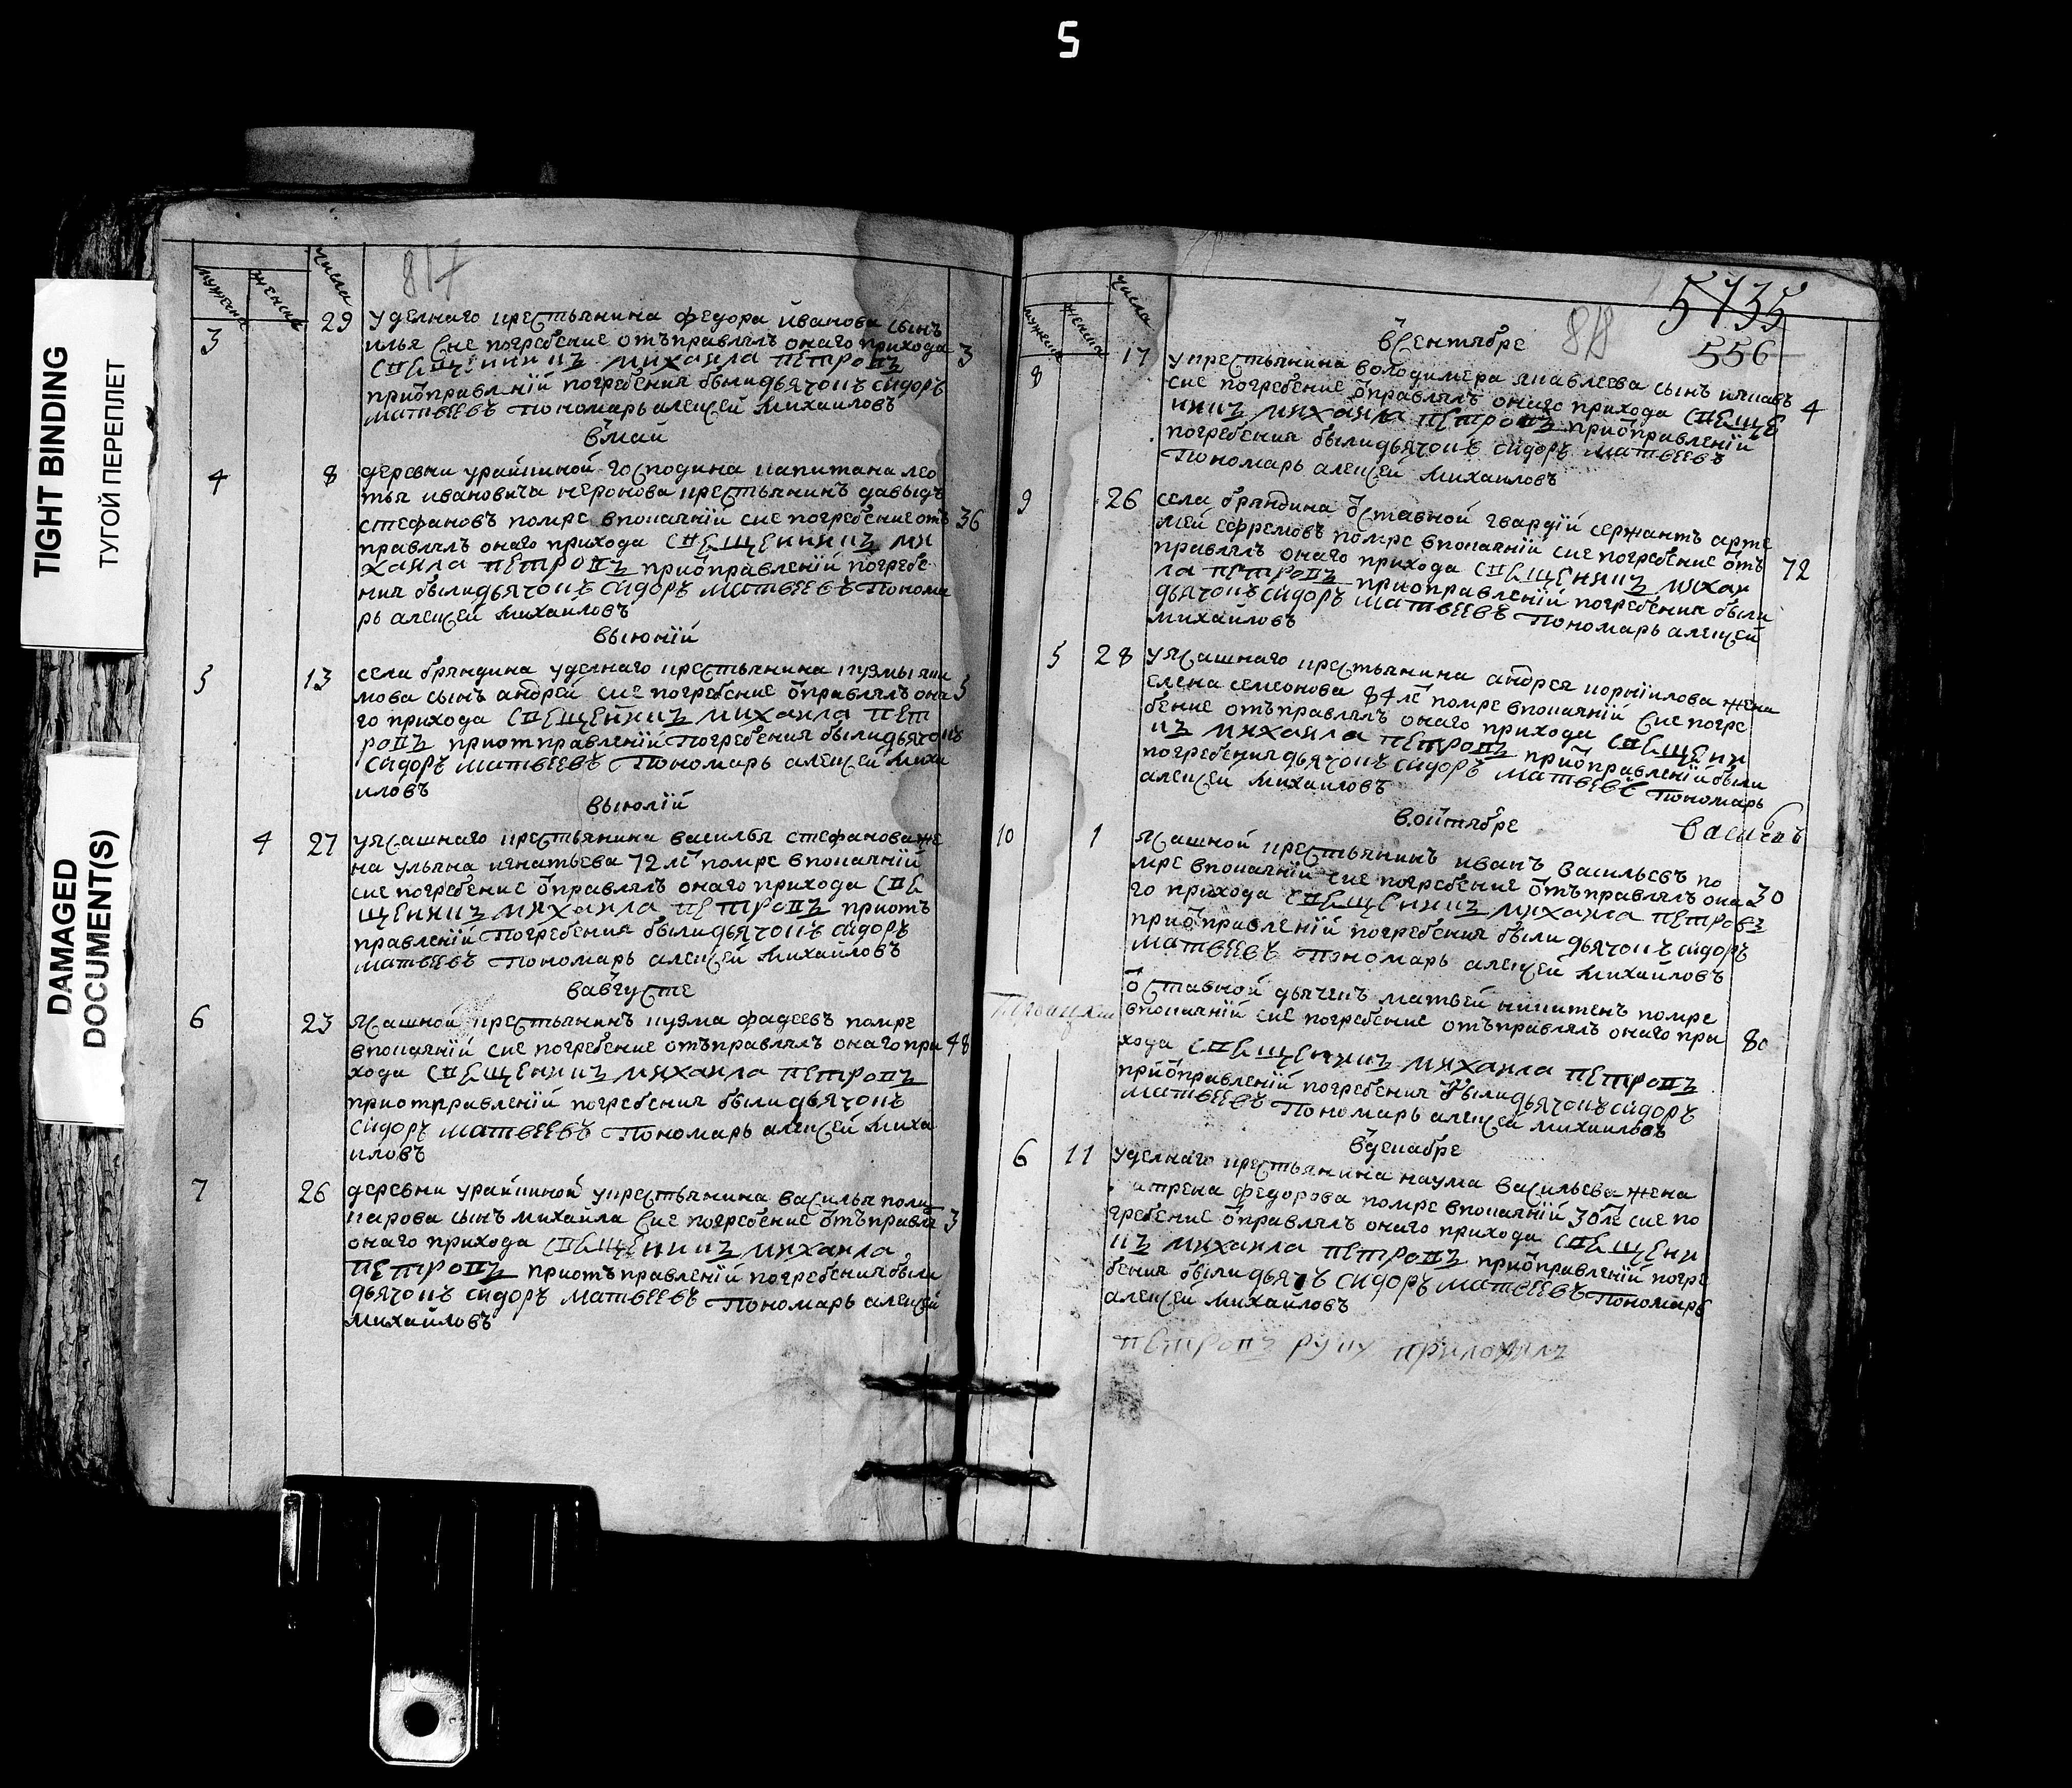 5
TIGHT BINDING
ТУГОЙ ПЕРЕПЛЕТ
DAMAGED
DOCUMENT(S)
мужеска
женска
числа
817
3 29 уделнаго крестьянина федора иванова сынъ
илья сие погребение отъправлялъ онаго прихода 3
священникъ михаила петровъ
приоправлений погребения были дьячокъ сидоръ
матвеевъ пономарь алексей михаиловъ
вмаи
4 8 деревни урайкиной господина капитана лео
тья ивановича неронова крестьянинъ давыдъ
стефановъ помре впокаяний сие погребение отъ 36
правлялъ онаго прихода священникъ ми
хаила петровъ приоправлений погребе
ния были дьячокъ сидоръ матвеевъ понома
рь алексей михаиловъ
выюний
5 13 села бряндина уделнаго крестьянина кузмы яки
мова сынъ андрей сие погребение оправлялъ она 5
го прихода священникъ михаила пет
ровъ приотправлений погребения были дьячокъ
сидоръ матвеевъ пономарь алексей михаи
иловъ
выюлий
4 27 уясашнаго крестьянина василья стефанова же
на ульяна игнатьева 72 ле помре впокаяний
сие погребение оправлялъ онаго прихода свя
щенникъ михаила петровъ приотъ
правлений погребения были дьячокъ сидоръ
матвеевъ пономарь алексей михайловъ
вавгусте
6 23 ясашной крестьянинъ кузма фадеевъ помре
впокаяний сие погребение отъправлялъ онаго при 48
хода священникъ михаила петровъ
приотправлений погребения были дьячокъ
сидоръ матвеевъ пономарь алексей миха
иловъ
7 26 деревни урайкиной укрестьянина василья поли
карова сынъ михайла сие погребение отъправля 3
онаго прихода священникъ михаила
петровъ приотъправлений погребения были
дьячокъ сидоръ матвеевъ пономарь алексей
михайловъ
мужеска
женска
числа
5735
818
556
всентябре
8 17 укрестьянина володимера яковлева сынъ
сие погребение оправлялъ онаго прихода свяще 4
нникъ михаила петровъ приоправлений
погребения были дьячокъ сидоръ матвеевъ
пономарь алексей михаиловъ
9 26 села бряндина оставной гвардий сержантъ арте
мей ефремовъ помре впокаяний сие погребение отъ
правлялъ онаго прихода священникъ михаи 72
ла петровъ приоправлений погребения были
дьячокъ сидоръ матвеевъ пономарь алексей
михайловъ
5 28 уясашнаго крестьянина андрея корнилова жена
елена семионова 84 ле помре впокаяний сие погре
бение отъправлялъ онаго прихода священи
къ михаила петровъ приоправлений были
погребения дьячокъ сидоръ матвеевъ пономарь
алексей михаиловъ
воктябре
10 1 ясашной крестьянинъ иванъ васильевъ по
мре впокаяний сие погребение отъправлялъ она 30
го прихода священникъ михаила петровъ
приоправлений погребения были дьячокъ сидоръ
матвеевъ пономарь алексей михайловъ
оставной дьячекъ матвей никитенъ помре
впокаяний сие погребение отъправлялъ онаго при 80
хода священникъ михаила петровъ
приоправлений погребения были дьячокъ сидоръ
матвеевъ пономарь алексей михаиловъ
вдекабре
6 11 уделнаго крестьянина наума васильева жена
федорова помре впокаяний 30 ле сие по
гребение оправлялъ онаго прихода священи
къ михаила петровъ приоправлений погре
бения были сидоръ матвеевъ пономарь
алексей михайловъ
петровъ руку приложилъ